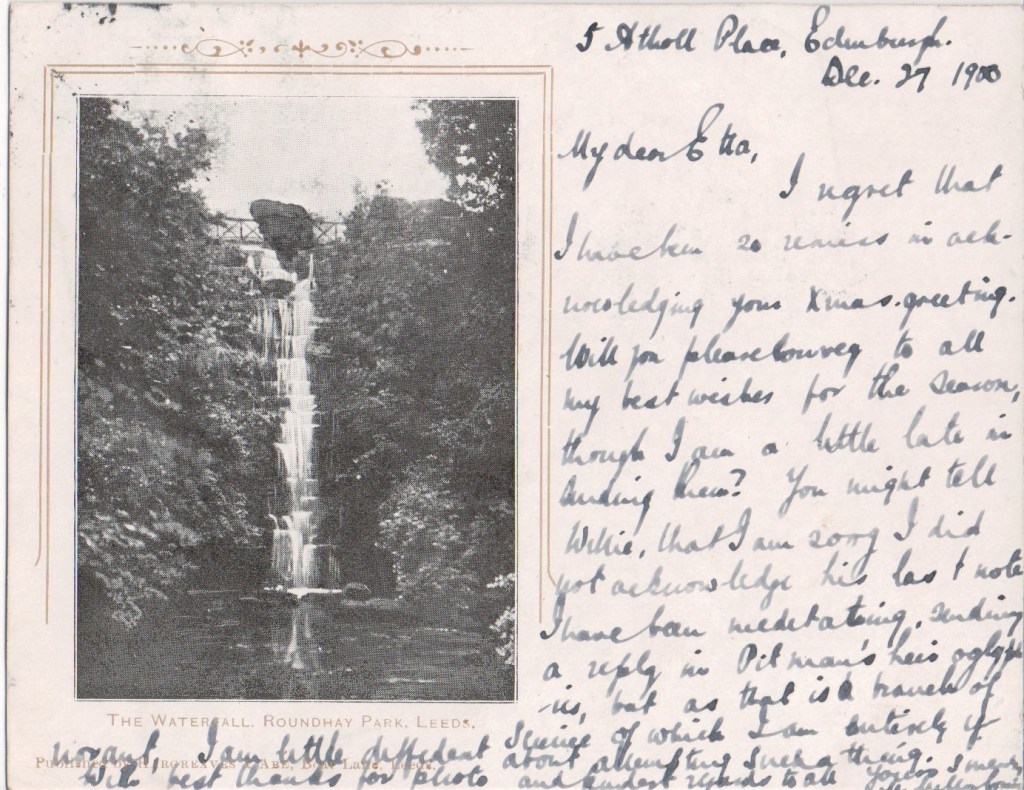 5 Atholl Place, Edinburgh.
Dec. 27 1903
My dear Etta,
I regret that
I have been so remiss in ack-
nowledging your Xmas greeting.
Will you please convey to all
my best wishes for the season,
though I am a little late in
sending them? You might tell
Willie, that I am sorry I did
not acknowledge his last note
I have been meditating, sending
a reply in Pitman's hieroglyph
-ics, but as that is a branch of
science of which I am entirely ig
norant, I am little diffident about attempting such a thing.
With best thanks for photo and kindest regards to all Yours sincerely
THE WATERFALL, ROUNDHAY PARK, LEEDS.